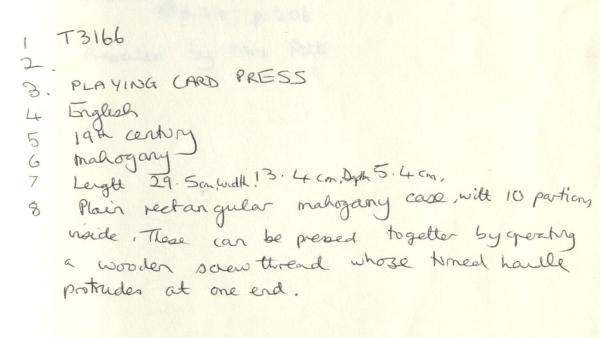 1 T3166
2.
3. PLAYING CARD PRESS
4 English
5 19th century
6 mahogany
7 Length 29.5cm, width 13.4cm, Depth 5.4cm,
8 Plain rectangular mahogany case, with 10 partions
inside. These can be pressed together by operating
a wooden screw thread whose turned handle
protrudes at one end.